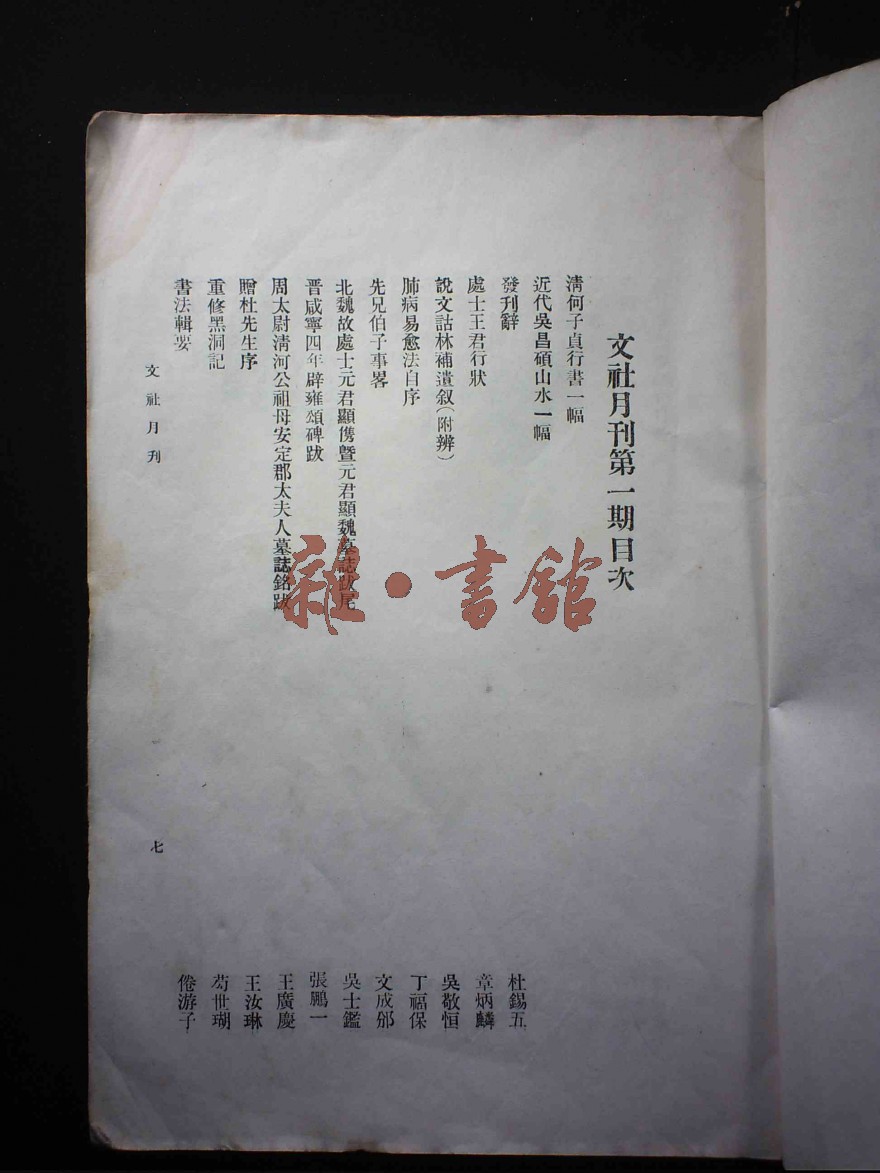 文社月刊第一期目次
清何子貞行書一幅
近代吳昌碩山水一幅
發刊辭 杜錫五
處士王君行狀 章炳麟
說文詁林補遺叙(附辨) 吳敬恒
肺病易愈法自序 丁福保
先兄伯子事畧 文成邠
北魏故處士元君顯儁暨元君顯魏墓誌跋尾 吳士鑑
晋咸寧四年辟雍頌碑跋 張鵬一
周太尉清河公祖母安定郡太夫人墓誌銘跋 王廣慶
贈杜先生序 王汝琳
重修黑洞記 芶世瑚
書法輯要 倦游子
文社月刊
七
雜·書館